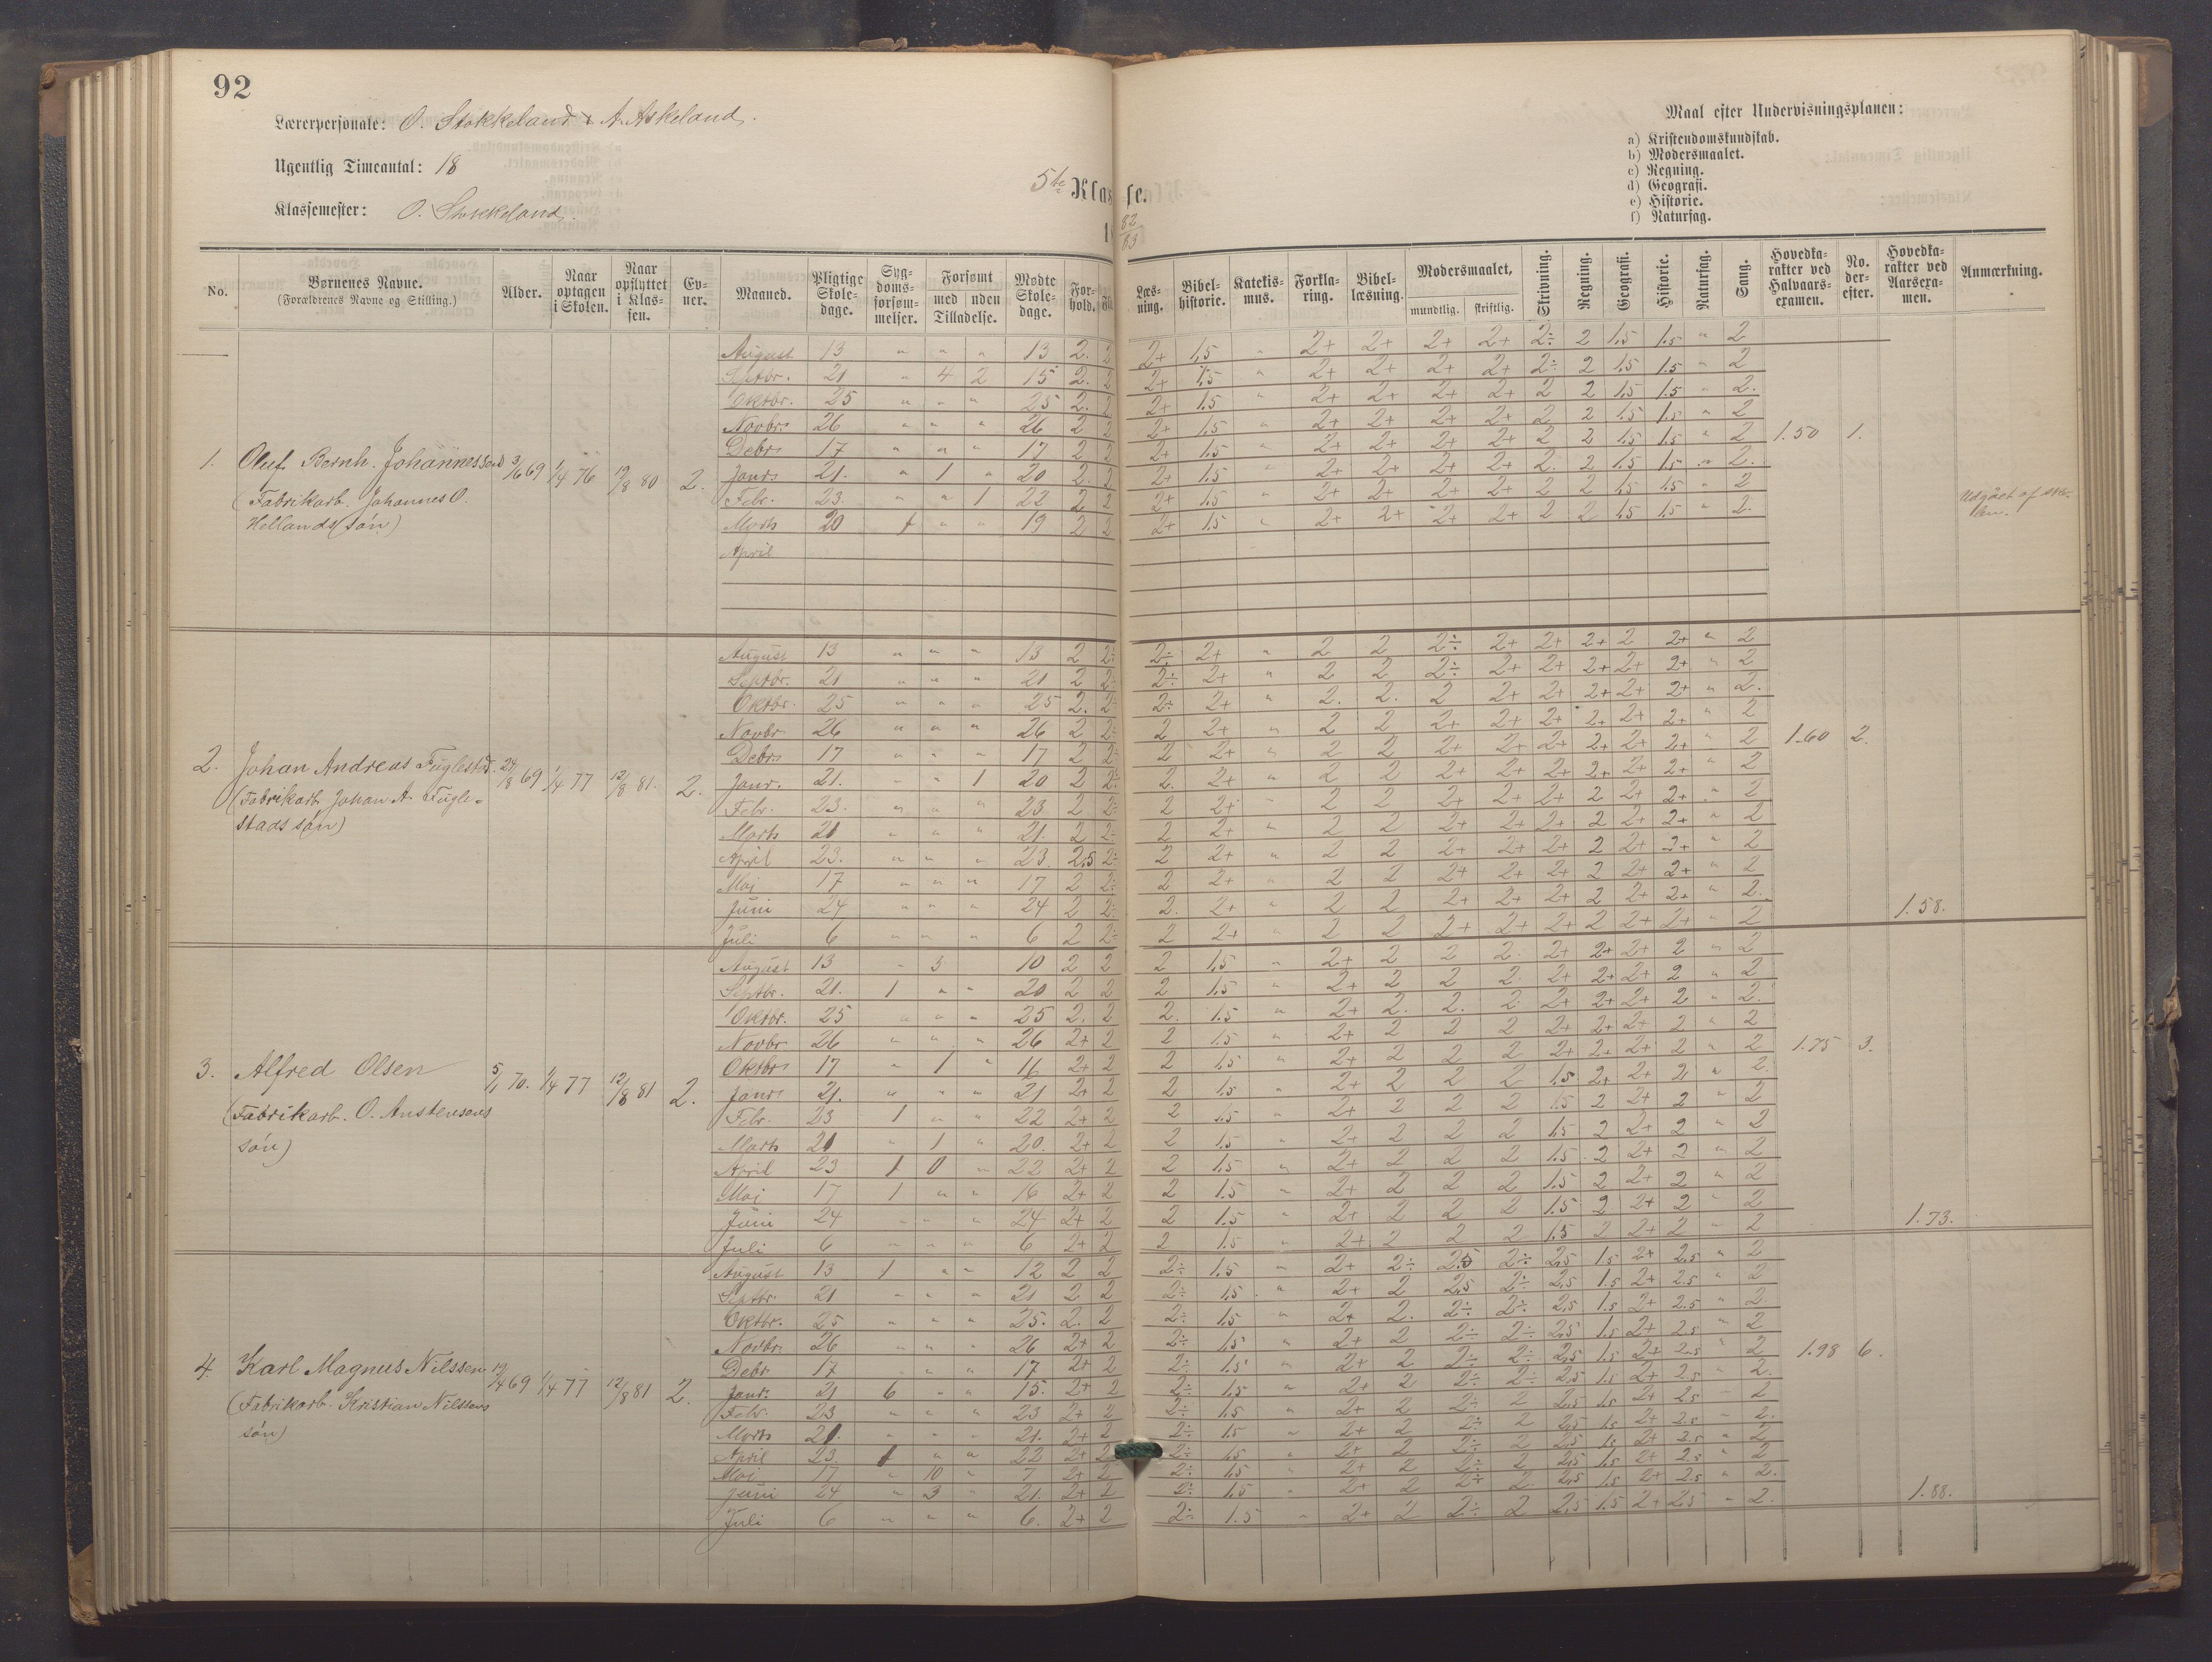 92
Lærerpersonale: O. Stokkeland & A. Askeland.
Ugentlig Timeantal: 18
Klassemester: O. Stokkeland.
5te Klasse.
18 82/83
Maal efter Undervisningsplanen:
a) Kristendomskundskab.
b) Modersmaalet.
c) Regning.
d) Geografi.
e) Historie.
f) Naturfag.
No. Børnenes Navne. (Forældrenes Navne og Stilling.) Alder. Naar optagen i Skolen. Naar opflyttet i Klassen. Evner. Maaned. Pligtige Skoledage. Sygdomsforsømmelser. Forsømt med uden Tilladelse. Mødte Skoledage. Forhold. Læsning. Bibelhistorie. Katekismus. Forklaring. Bibellæsning. Modersmaalet, mundtlig. skriftlig. Skrivning. Regning. Geografi. Historie. Naturfag. Sang. Hovedkarakter ved Halvaarsexamen. No. derefter. Hovedkarakter ved Aarsexamen. Anmærkning.
August 13 " " " 13 2. 2 2+ 1,5 " 2+ 2+ 2+ 2+ 2÷ 2 1,5 1.5 " 2
Septbr. 21 " 4 2 15 2. 2 2+ 1,5 " 2+ 2+ 2+ 2+ 2÷ 2 1,5 1.5 " 2
Oktbr. 25 " " " 25 2. 2 2+ 1.5 " 2+ 2+ 2+ 2+ 2 2 1,5 1.5 " 2.
Novbr. 26 " " " 26 2 2 2+ 1,5 " 2+ 2+ 2+ 2+ 2 2 1.5 1.5 " 2
Debr. 17 " " " 17 2 2 2+ 1.5 " 2+ 2+ 2+ 2+ 2 2 1,5 1.5 " 2 1.50 1.
1. Oluf Bernh. Johannessen 3/6 69 1/4 76 19/8 80 2. Janr. 21. " 1 " 20 2. 2 2+ 1.5 " 2+ 2+ 2+ 2+ 2. 2 1.5 1.5 " 2.
(Fabrikarb. Johannes O. Febr. 23. " " 1 22 2 2 2+ 1,5 " 2+ 2+ 2+ 2+ 2 2 1,5 1.5 " 2 Udgået af sko-
Hellands søn) Marts 20 1 " " 19 2 2 2+ 1,5 " 2+ 2+ 2+ 2+ 2 2 1.5 1.5 " 2. len.
April
August 13 " " " 13 2 2÷ 2÷ 2+ " 2 2 2÷ 2+ 2+ 2+ 2 2+ " 2
Septbr. 21 " " " 21 2 2÷ 2÷ 2+ " 2 2 2÷ 2+ 2+ 2+ 2+ 2+ " 2
Oktbr. 25 " " " 25 2. 2÷ 2÷ 2+ " 2. 2. 2 2+ 2+ 2+ 2+ 2+ " 2.
Novbr 26 " " " 26 2 2÷ 2 2+ " 2 2 2+ 2+ 2+ 2+ 2+ 2+ " 2
Debr. 17 " " " 17 2 2÷ 2 2+ " 2 2 2+ 2+ 2+ 2+ 2+ 2+ " 2 1.60 2.
2. Johan Andreas Fuglestad. 24/8 69 1/4 77 12/8 81. 2. Janr. 21. " " 1 20 2 2÷ 2. 2+ " 2 2 2+ 2+ 2+ 2+ 2+ 2+ " 2
(Fabrikarb. Johan A. Fugle- Febr. 23. " " " 23 2 2÷ 2 2+ " 2 2 2+ 2+ 2+ 2 2+ 2+ " 2
stads søn) Marts 21 " " " 21. 2 2÷ 2 2+ " 2 2 2+ 2+ 2+ 2 2+ 2+ " 2
April 23. " " " 23. 2,5 2÷ 2 2+ " 2 2 2+ 2+ 2+ 2 2+ 2+ " 2
Mai 17 " " " 17 2 2÷ 2 2+ " 2 2 2+ 2+ 2+ 2 2+ 2+ " 2
Juni 24 " " " 24 2 2÷ 2. 2+ " 2 2 2+ 2+ 2+ 2 2+ 2+ " 2. 1.58.
Juli 6 " " " 6 2 2÷ 2 2+ " 2 2 2+ 2+ 2+ 2 2+ 2+ " 2
August 13 " 3 10 2 2 2 1,5 " 2+ 2 2 2. 2+ 2+ 2+ 2 " 2
Septbr. 21. 1 " " 20 2 2 2 1,5 " 2+ 2 2 2. 2+ 2+ 2+ 2 " 2
Oktbr. 25 " " " 25 2. 2 2. 1.5 " 2+ 2. 2. 2. 2+ 2+ 2+ 2 " 2.
Novbr 26 " " " 26 2+ 2 2 1.5 " 2+ 2 2 2 2+ 2+ 2+ 2 " 2
Oktbr. 17 " 1 " 16 2+ 2 2 1,5 " 2+ 2 2 2 2+ 2+ 2+ 2 " 2 1.75 3.
3. Alfred Olsen 5/1 70. 1/4 77 12/8 81 2. Janr. 21. " " " 21 2+ 2 2 1,5 " 2+ 2 2 2 1.5 2+ 2+ 2 " 2.
(Fabrikarb. O. Austensens Febr. 23 1 " " 22 2+ 2 2 1.5 " 2+ 2 2 2 1.5 2 2+ 2 " 2
søn) Marts 21 " 1 " 20. 2+ 2 2 1.5 " 2+ 2 2 2 1,5 2 2+ 2 " 2
April 23 1 0 " 22 2+ 2 2 1.5 " 2+ 2 2 2 1.5 2 2+ 2 " 2
Mai 17 1 " " 16 2+ 2 2 1.5 " 2+ 2 2 2 1.5 2 2+ 2 " 2
Juni 24 " " " 24 2+ 2 2 1.5 " 2+ 2 2 2 1.5 2 2+ 2 " 2 1.73.
Juli 6 " " " 6 2+ 2 2 1.5 " 2+ 2 2 2 1.5 2 2+ 2 " 2
August 13 1 " " 12 2 2 2÷ 1.5 " 2+ 2÷ 2.5 2÷ 2,5 1.5 2+ 2.5 " 2
Septbr. 21 " " " 21 2 2 2÷ 1,5 " 2+ 2 2,5 2÷ 2,5 1.5 2+ 2.5 " 2
Oktbr. 25 " " " 25. 2. 2 2÷ 1,5 " 2+ 2. 2÷ 2÷ 2,5 1.5 2+ 2.5 " 2.
Novbr. 26 " " " 26 2+ 2 2÷ 1,5 " 2+ 2 2÷ 2÷ 2,5 1.5 2+ 2.5 " 2
Debr 17 " " " 17 2+ 2 2÷ 1.5 " 2+ 2 2÷ 2÷ 2,5 1.5 2+ 2.5 " 2 1.98 6.
4. Karl Magnus Nilssen 19/4 69 1/4 77 12/8 81 2. Janr. 21 6 " " 15. 2+ 2 2÷ 1,5 " 2+ 2 2÷ 2÷ 2,5 1.5 2+ 2.5 " 2.
(Fabrikarb. Kristian Nilssens Febr. 23 " " " 23 2+ 2 2÷ 1,5 " 2+ 2 2÷ 2 2,5 1.5 2+ 2.5 " 2
søn) Marts 21. " " " 21. 2+ 2 2÷ 1.5 " 2+ 2 2÷ 2 2,5 1.5 2+ 2.5 " 2.
April 23. 1 " " 22 2+ 2 2÷ 1,5 " 2+ 2 2÷ 2 2,5 1.5 2+ 2.5 " 2
Mai 17 " 10 " 7 2+ 2 2÷ 1,5 " 2+ 2 2÷ 2 2,5 1.5 2+ 2.5 " 2
Juni 24 " 3 " 21. 2+ 2 2÷ 1,5 " 2+ 2 2÷ 2. 2,5 1.5 2+ 2.5 " 2. 1.88.
Juli 6 " " " 6. 2+ 2 2÷ 1.5 " 2+ 2 2÷ 2 2,5 1.5 2+ 2,5 " 2.